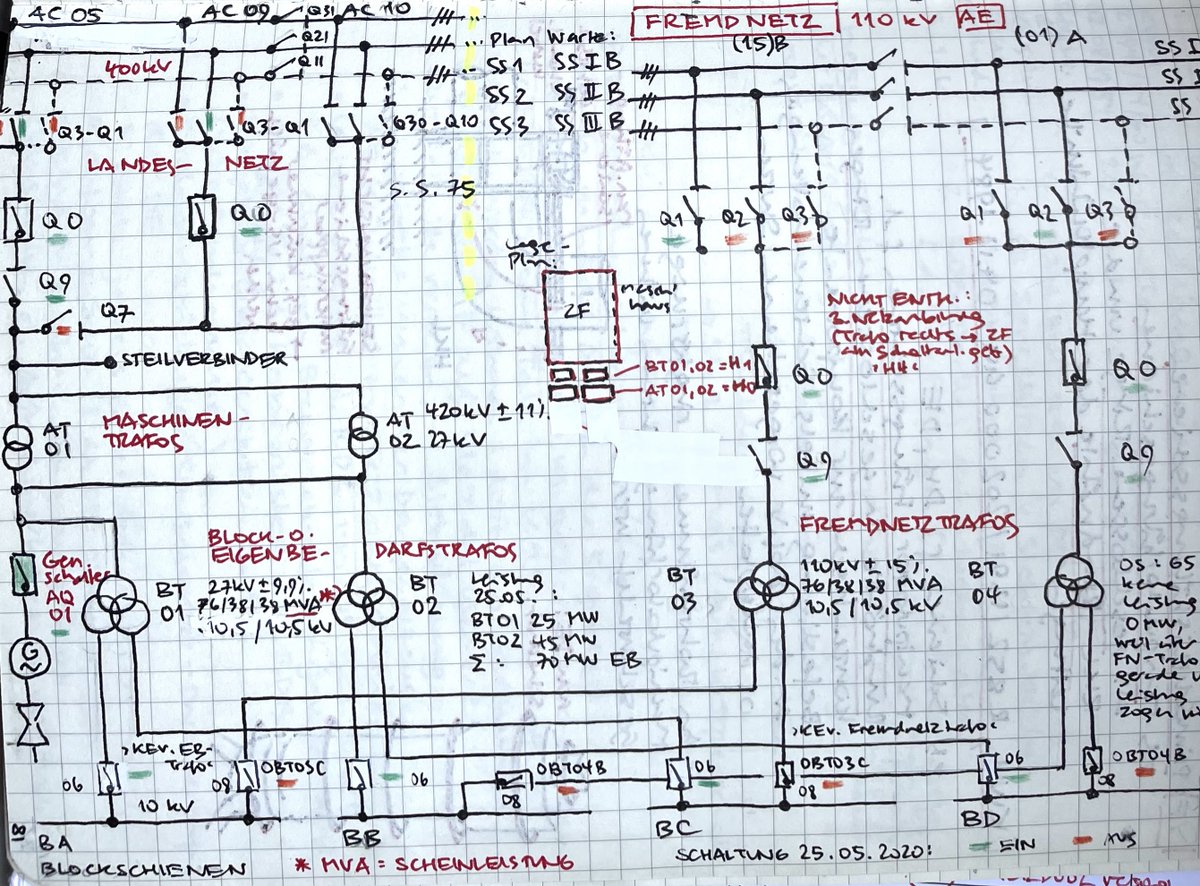 AC 05
AC 09
Q31
AC 10
Q21
Q11
400kV
Q3-Q1
Q3-Q1
Q30-Q10
LANDES-NETZ
Plan Warte:
SS1 SS I B
SS2 SS II B
SS3 SS III B
S.S. 75
FREMDNETZ 110 kV AE
(15)B
(01)A
SS I
SS
SS
Q0
Q0
Q9
Q7
STEILVERBINDER
Lage-
Plan:
ZF
BT01,02 = H1
AT01,02 = H0
Q1 Q2 Q3
Q1 Q2 Q3
NICHT ENTH.:
3. Netzanbindung
(Trafo rechts → ZF
Q0
Q0
Q9
Q9
AT
01
MASCHINEN-
TRAFOS
AT 420kV ± 11%
02 27kV
Gen
schalter
AQ
01
BLOCK- O.
EIGENBE-DARFSTRAFOS
BT
01
27kV ± 9,9%
76/38/38 MVA *)
10,5/10,5 kV
BT
02
Leistung
25.05.:
BT01 25 MW
BT02 45 MW
Σ: 70 MW EB
FREMDNETZTRAFOS
BT
03
110kV ± 15%
76/38/38 MVA
10,5/10,5 kV
BT
04
OS: 65
keine
Leistung
0 MW,
weil
FN-Trafo
gerade
Leistung
G
~
>KEv. EB-
Trafo<
>KEv. Fremdnetztrafo<
06
08
0BT03C
06
0BT04B
08
06
0BT03C
08
06
0BT04B
08
10 kV
BA
BB
BC
BD
BLOCKSCHIENEN
* MVA = SCHEINLEISTUNG
SCHALTUNG 25.05.2020:
EIN
AUS
18